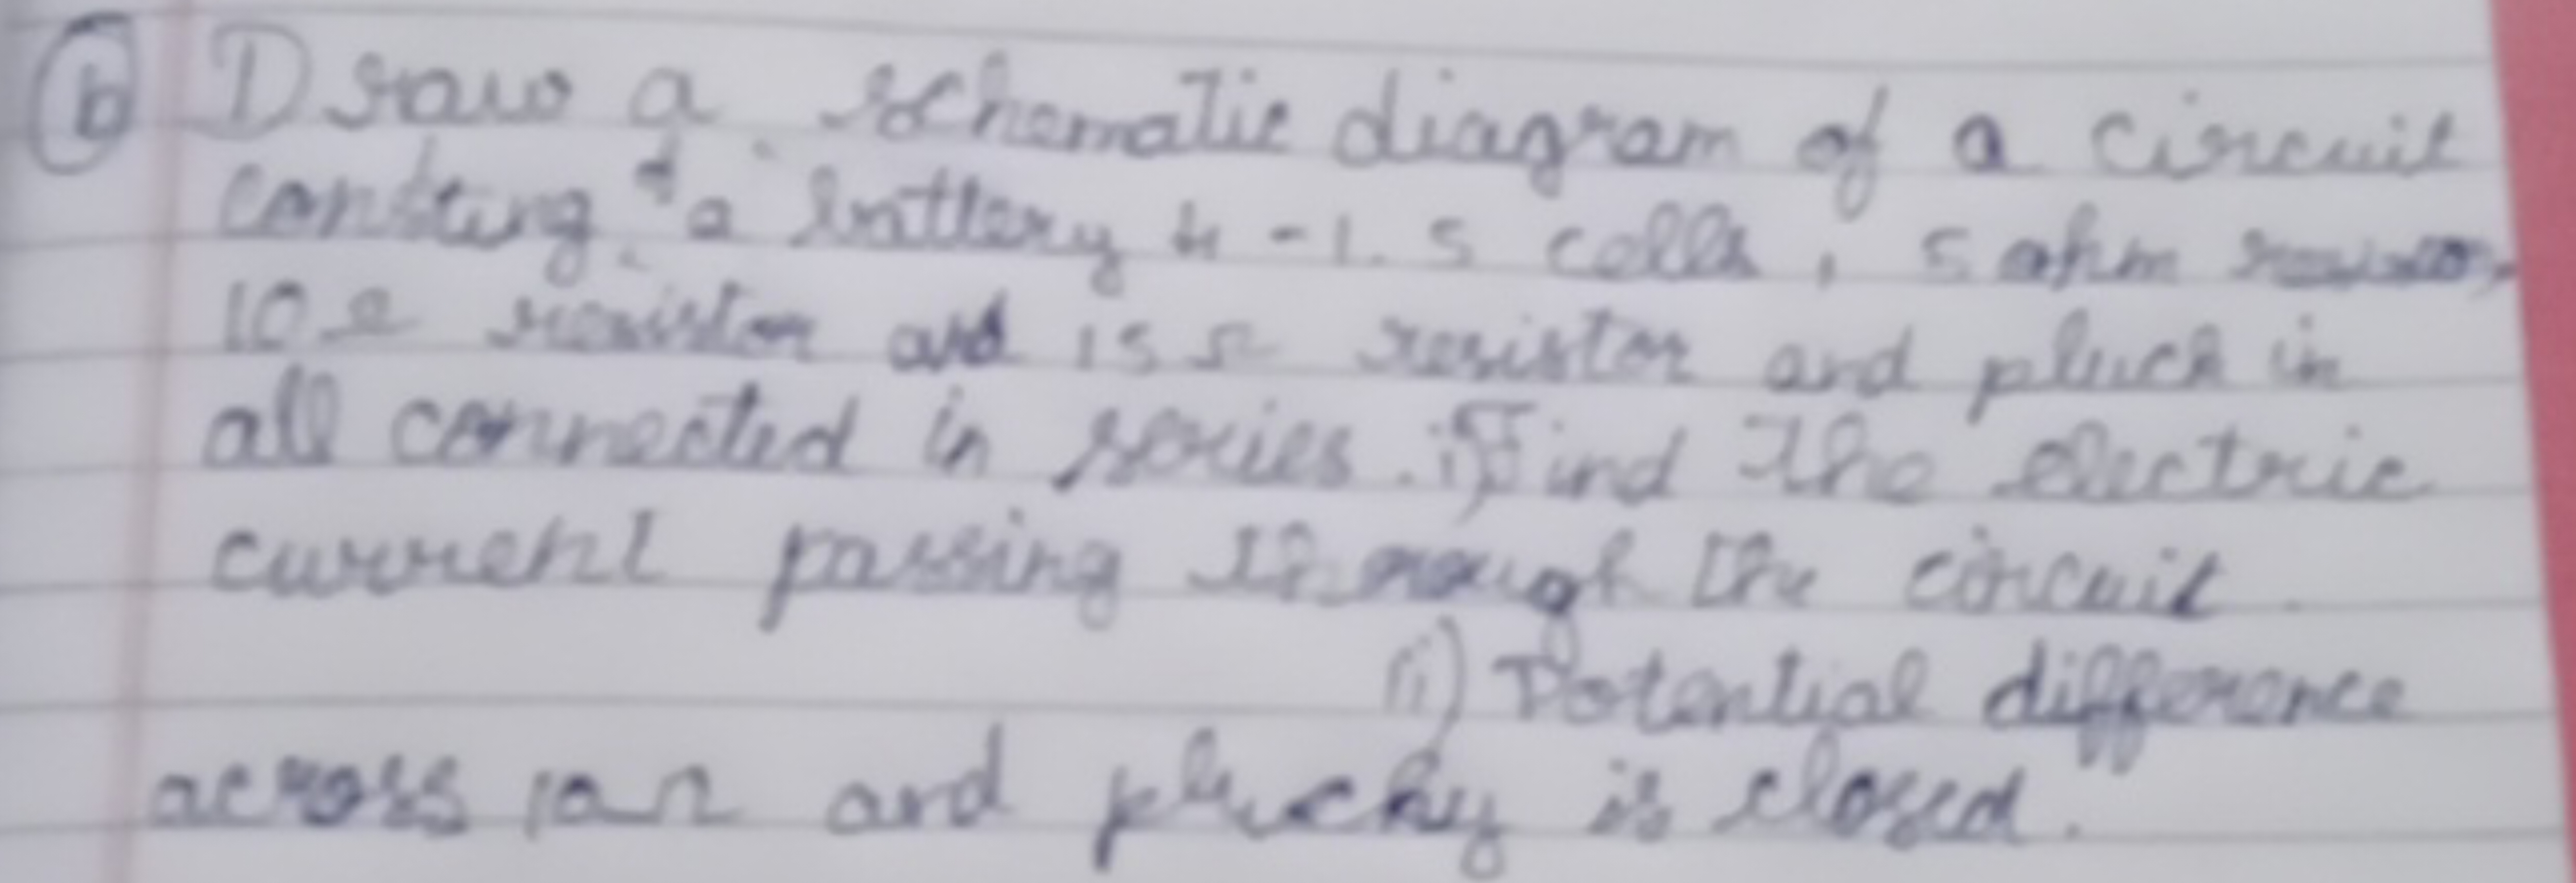 (b) Draw a schematic diagram of a circuit
consting of a battery 4 - 1.5 cells, 5 ohm
10 Ω resistor and 15 Ω resistor and pluck in
all connected in series. i) Find the electric
current passing through the circuit.
ii) Potential difference
across 10 Ω and plucky is closed.